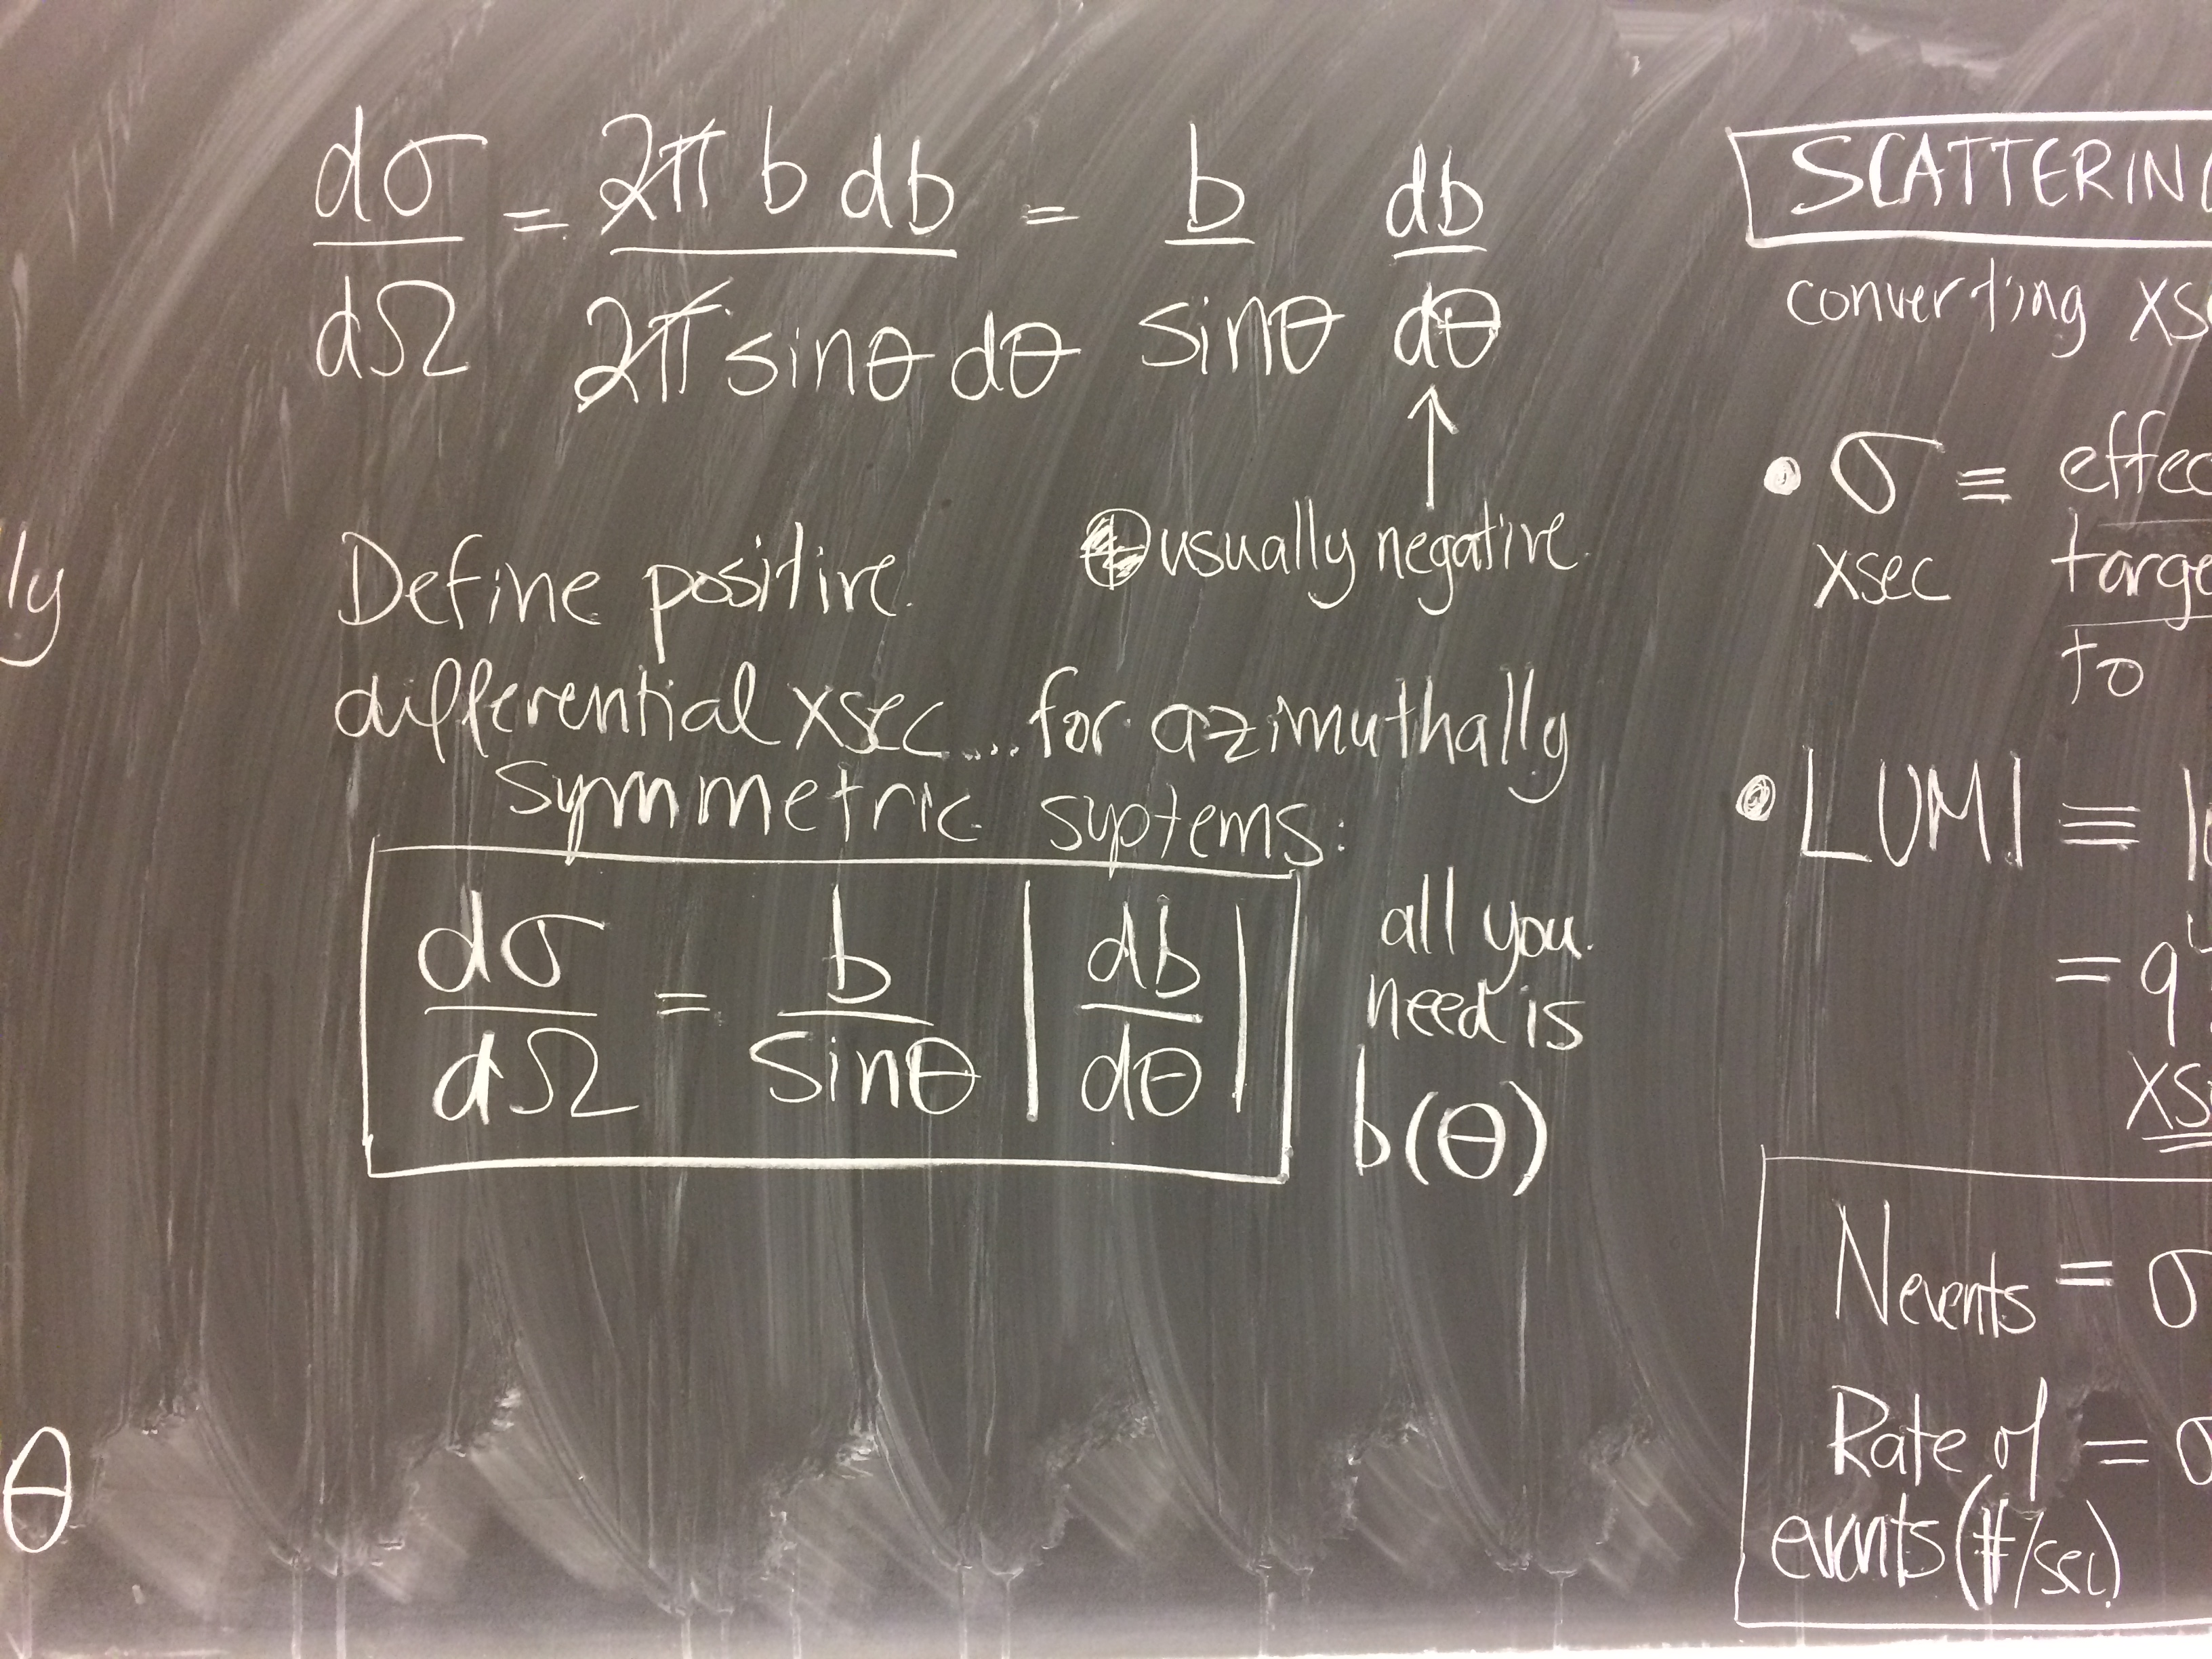 dσ/dΩ = 2π b db / 2π sinθ dθ = b/sinθ db/dθ
↑
usually negative
Define positive
differential xsec... for azimuthally
symmetric systems:
dσ/dΩ = b/sinθ |db/dθ|
all you
need is
b(θ)
ly
θ
SCATTERIN
converting xs
• σ ≡ effec
xsec targe
to
• LUMI ≡
= q
xs
Nevents = σ
Rate of = σ
events (#/sec)